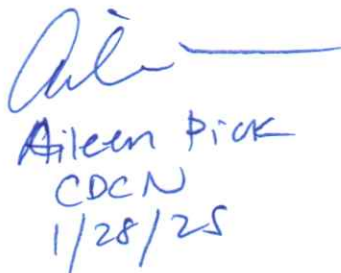 Aileen Pick
CDCN
1/28/25